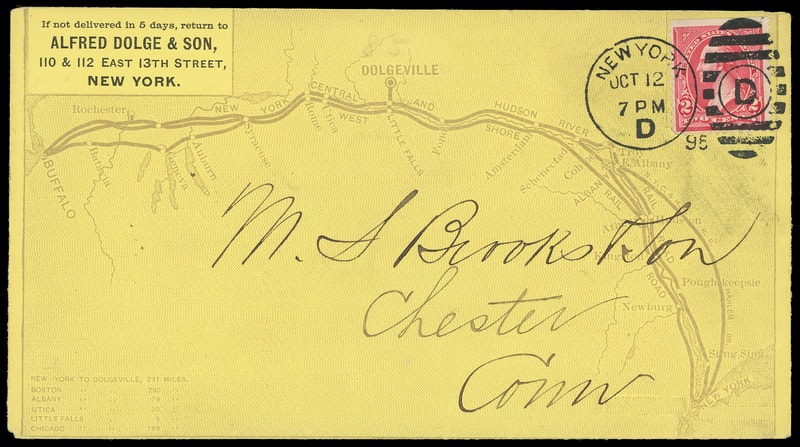 If not delivered in 5 days, return to
ALFRED DOLGE & SON,
110 & 112 EAST 13TH STREET,
NEW YORK.
NEW YORK
OCT 12
7 PM
D
95
D
2
2
DOLGEVILLE
Rochester
NEW YORK CENTRAL AND HUDSON RIVER
WEST SHORE
Rome
Utica
LITTLE FALLS
Amsterdam
Schenectady
Troy
E. Albany
BUFFALO
Batavia
Geneva
Auburn
Syracuse
ALBANY
RAIL
RAIL
ROAD
Hudson
Poughkeepsie
Newburg
HARLEM
Sing Sing
NEW YORK
M. S Brooks & Son
Chester
Conn
NEW YORK TO DOLGEVILLE, 231 MILES.
BOSTON " " 290 "
ALBANY " " 79 "
UTICA " "
LITTLE FALLS " "
CHICAGO " "